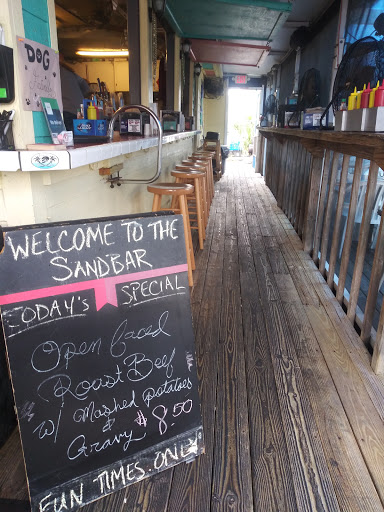 DOG
WELCOME TO THE
SANDBAR
TODAY'S SPECIAL
Open faced
Roast Beef
w/ Mashed Potatoes
&
Gravy $8.50
FUN TIMES ONLY